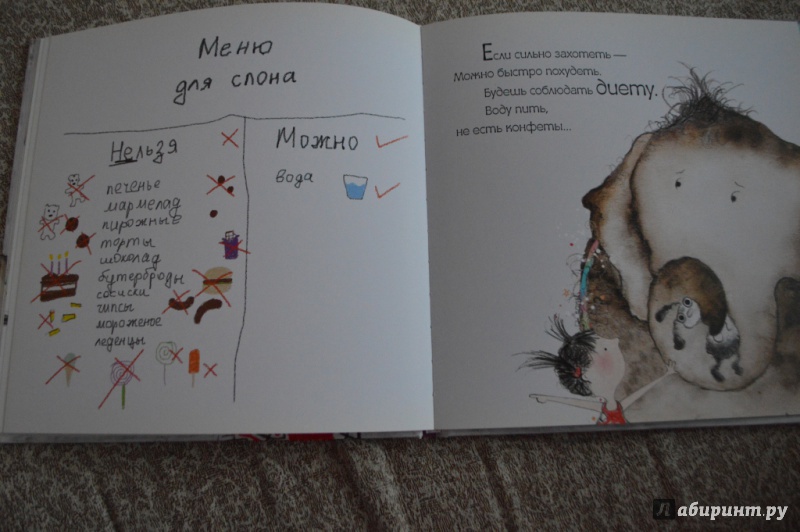 Меню
для слона
Нельзя
Можно
печенье
мармелад
пирожные
торты
шоколад
бутерброды
сосиски
чипсы
мороженое
леденцы
вода
Если сильно захотеть —
Можно быстро похудеть.
Будешь соблюдать диету.
Воду пить,
не есть конфеты...
Лабиринт.ру